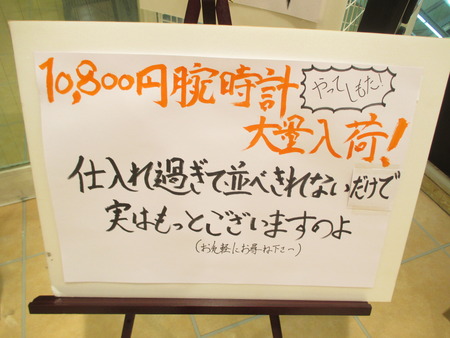 10,800円腕時計
やってしもた!
大量入荷!
仕入れ過ぎて並べきれないだけで
実はもっとございますのよ
(お気軽にお尋ね下さ〜)